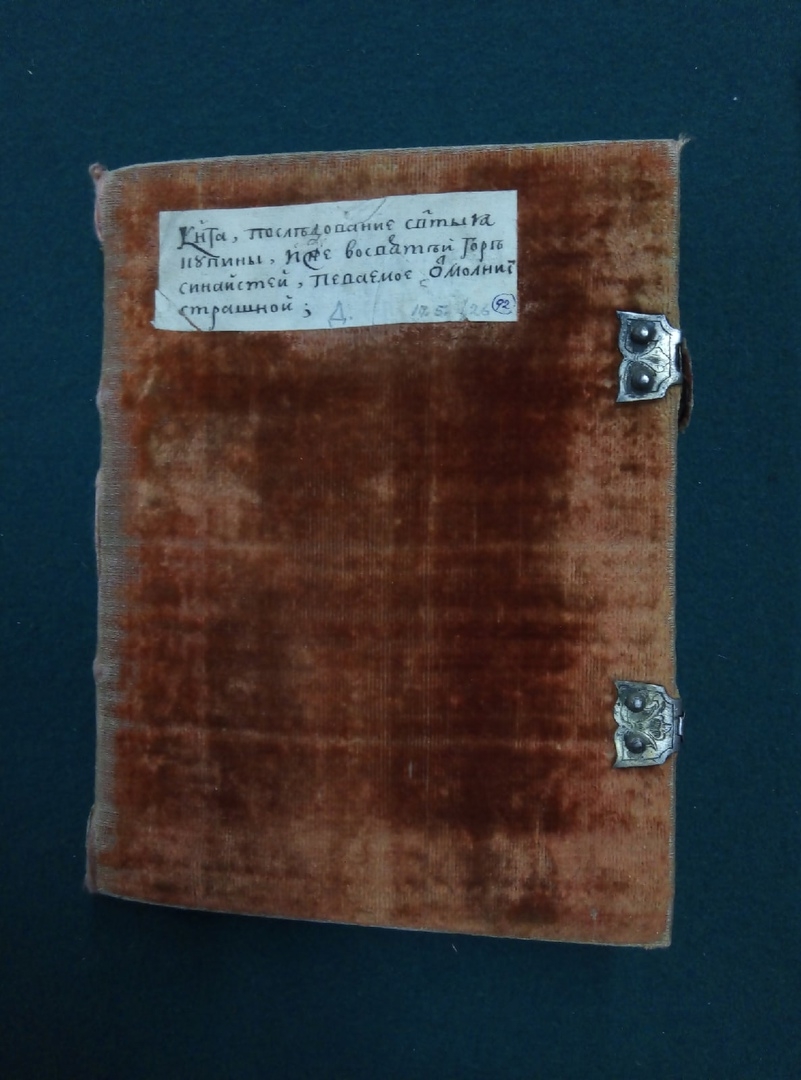 Кни҃га, послѣдование ст҃ыѧ
купины, и҆же восвѧтѣй Горѣ
синайстей, певаемое ѿ молнiи
страшной;   Д.   92